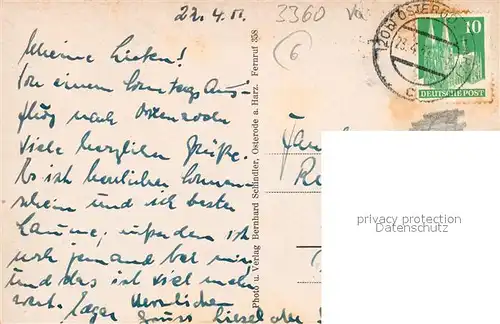 22. 4. 51.
3360
6
Meine Lieben!
Von einem Sonntags Aus-
flug nach Osterode
viele herzliche Grüße.
Es ist herrlicher Sonnen-
schein und ich bester
Laune, außerdem ist
noch jemand bei mir
und das ist viel mehr
wert.
Gruss Liesel
Photo u. Verlag Bernhard Schindler, Osterode a. Harz. Fernruf 358
OSTERODE
10
DEUTSCHE POST
Fam
privacy protection
Datenschutz